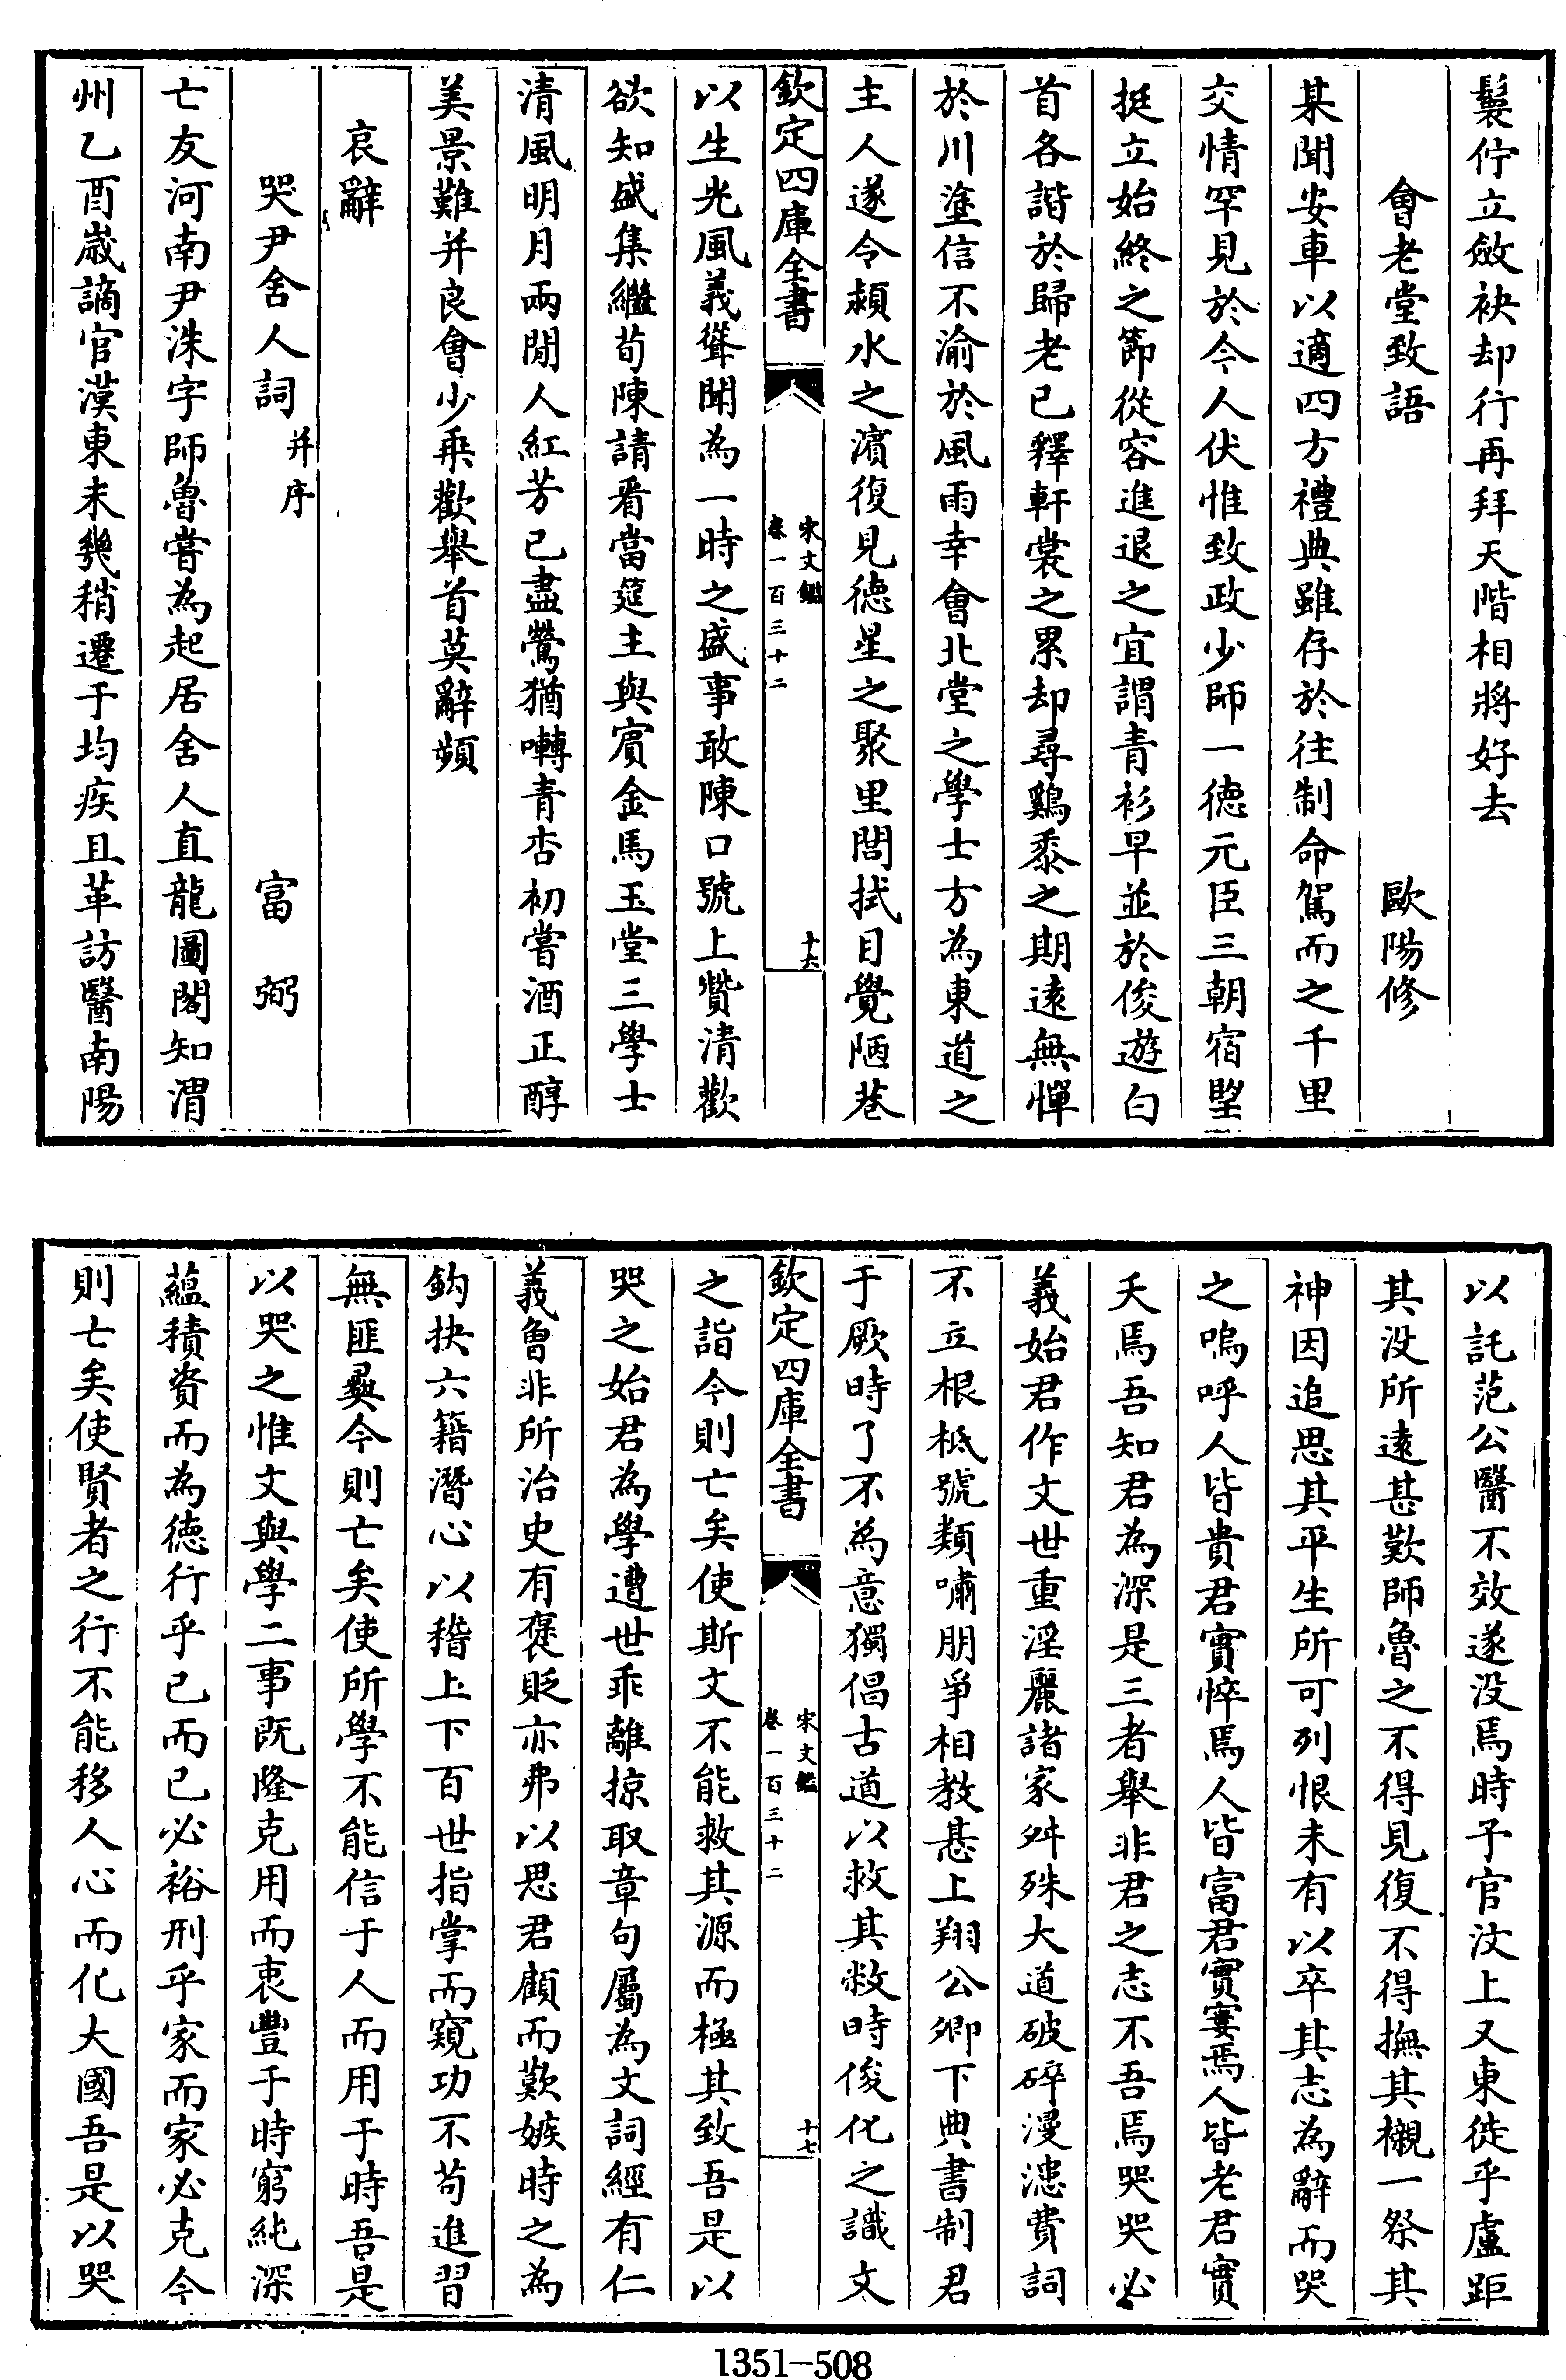 鬟佇立斂袂却行再拜天階相將好去
會老堂致語 歐陽修
某聞安車以適四方禮典雖存於往制命駕而之千里
交情罕見於今人伏惟致政少師一德元臣三朝宿望
挺立始終之節從容進退之宜謂青衫早並於俊遊白
首各諧於歸老已釋軒裳之累却尋鷄黍之期遠無憚
於川塗信不渝於風雨幸會北堂之學士方為東道之
主人遂令潁水之濱復見德星之聚里閭拭目覺陋巷
欽定四庫全書 宋文鑑 卷一百三十二 十六
以生光風義聳聞為一時之盛事敢陳口號上贊清歡
欲知盛集繼荀陳請看當筵主與賓金馬玉堂三學士
清風明月兩閒人紅芳已盡鶯猶囀青杏初嘗酒正醇
美景難并良會少乘歡舉首莫辭頻
哀辭
哭尹舍人詞并序 富弼
亡友河南尹洙字師魯嘗為起居舍人直龍圖閣知渭
州乙酉嵗謫官漢東未幾稍遷于均疾且革訪醫南陽
以託范公醫不效遂没焉時予官汶上又東徙乎盧距
其没所逺甚歎師魯之不得見復不得撫其櫬一祭其
神因追思其平生所可列恨未有以卒其志為辭而哭
之嗚呼人皆貴君實悴焉人皆富君實寠焉人皆老君實
夭焉吾知君為深是三者舉非君之志不吾焉哭哭必
義始君作文世重淫麗諸家舛殊大道破碎漫漶費詞
不立根柢號類嘯朋爭相教惎上翔公卿下典書制君
于厥時了不為意獨倡古道以救其敝時俊化之識文
欽定四庫全書 宋文鑑 卷一百三十二 十七
之詣今則亡矣使斯文不能救其源而極其致吾是以
哭之始君為學遭世乖離掠取章句屬為文詞經有仁
義魯非所治史有褒貶亦弗以思君顧而歎嫉時之為
鈎抉六籍潛心以稽上下百世指掌而窺功不苟進習
無匪彞今則亡矣使所學不能信于人而用于時吾是
以哭之惟文與學二事既隆克用而衷豐于時窮純深
藴積資而為德行乎已而已必裕刑乎家而家必克今
則亡矣使賢者之行不能移人心而化大國吾是以哭
1351-508